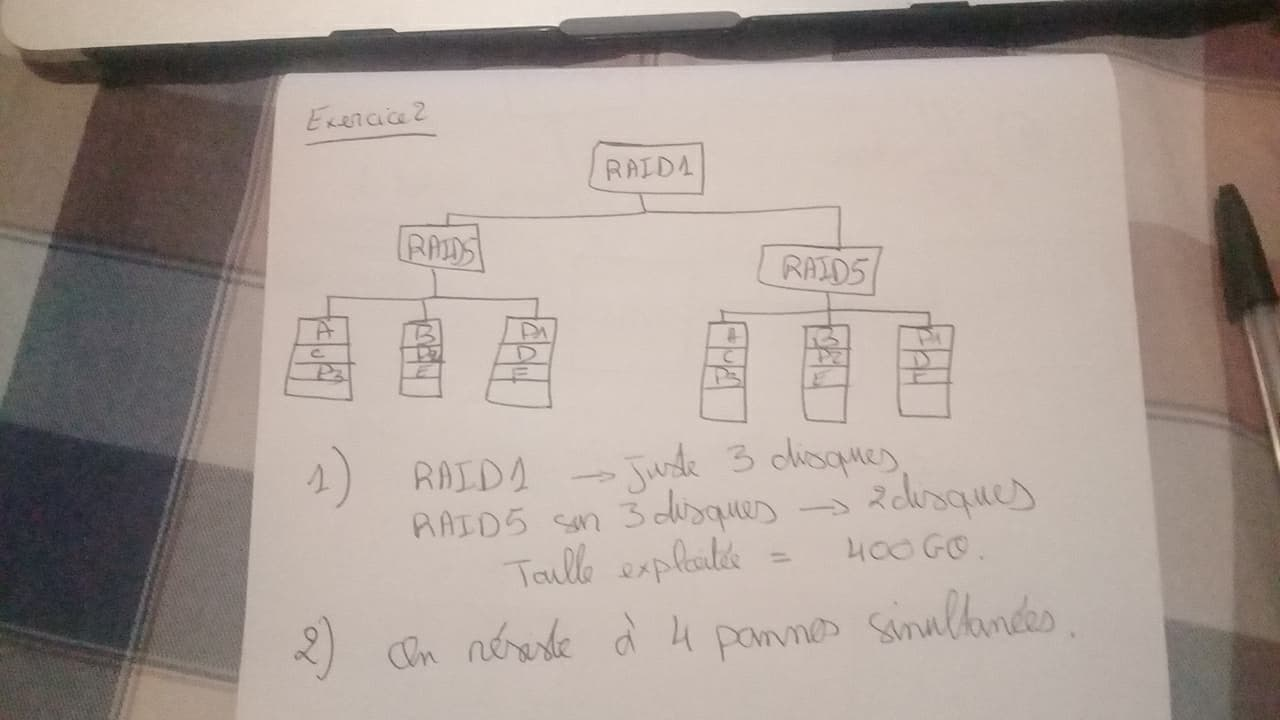 Exercice 2
RAID1
RAID5
RAID5
A B P1
C P2 D
P3 E F
A B P1
C P2 D
P3 E F
1) RAID1 → Juste 3 disques
RAID5 sur 3 disques → 2 disques
Taille exploitée = 400GO.
2) On résiste à 4 pannes simultanées.